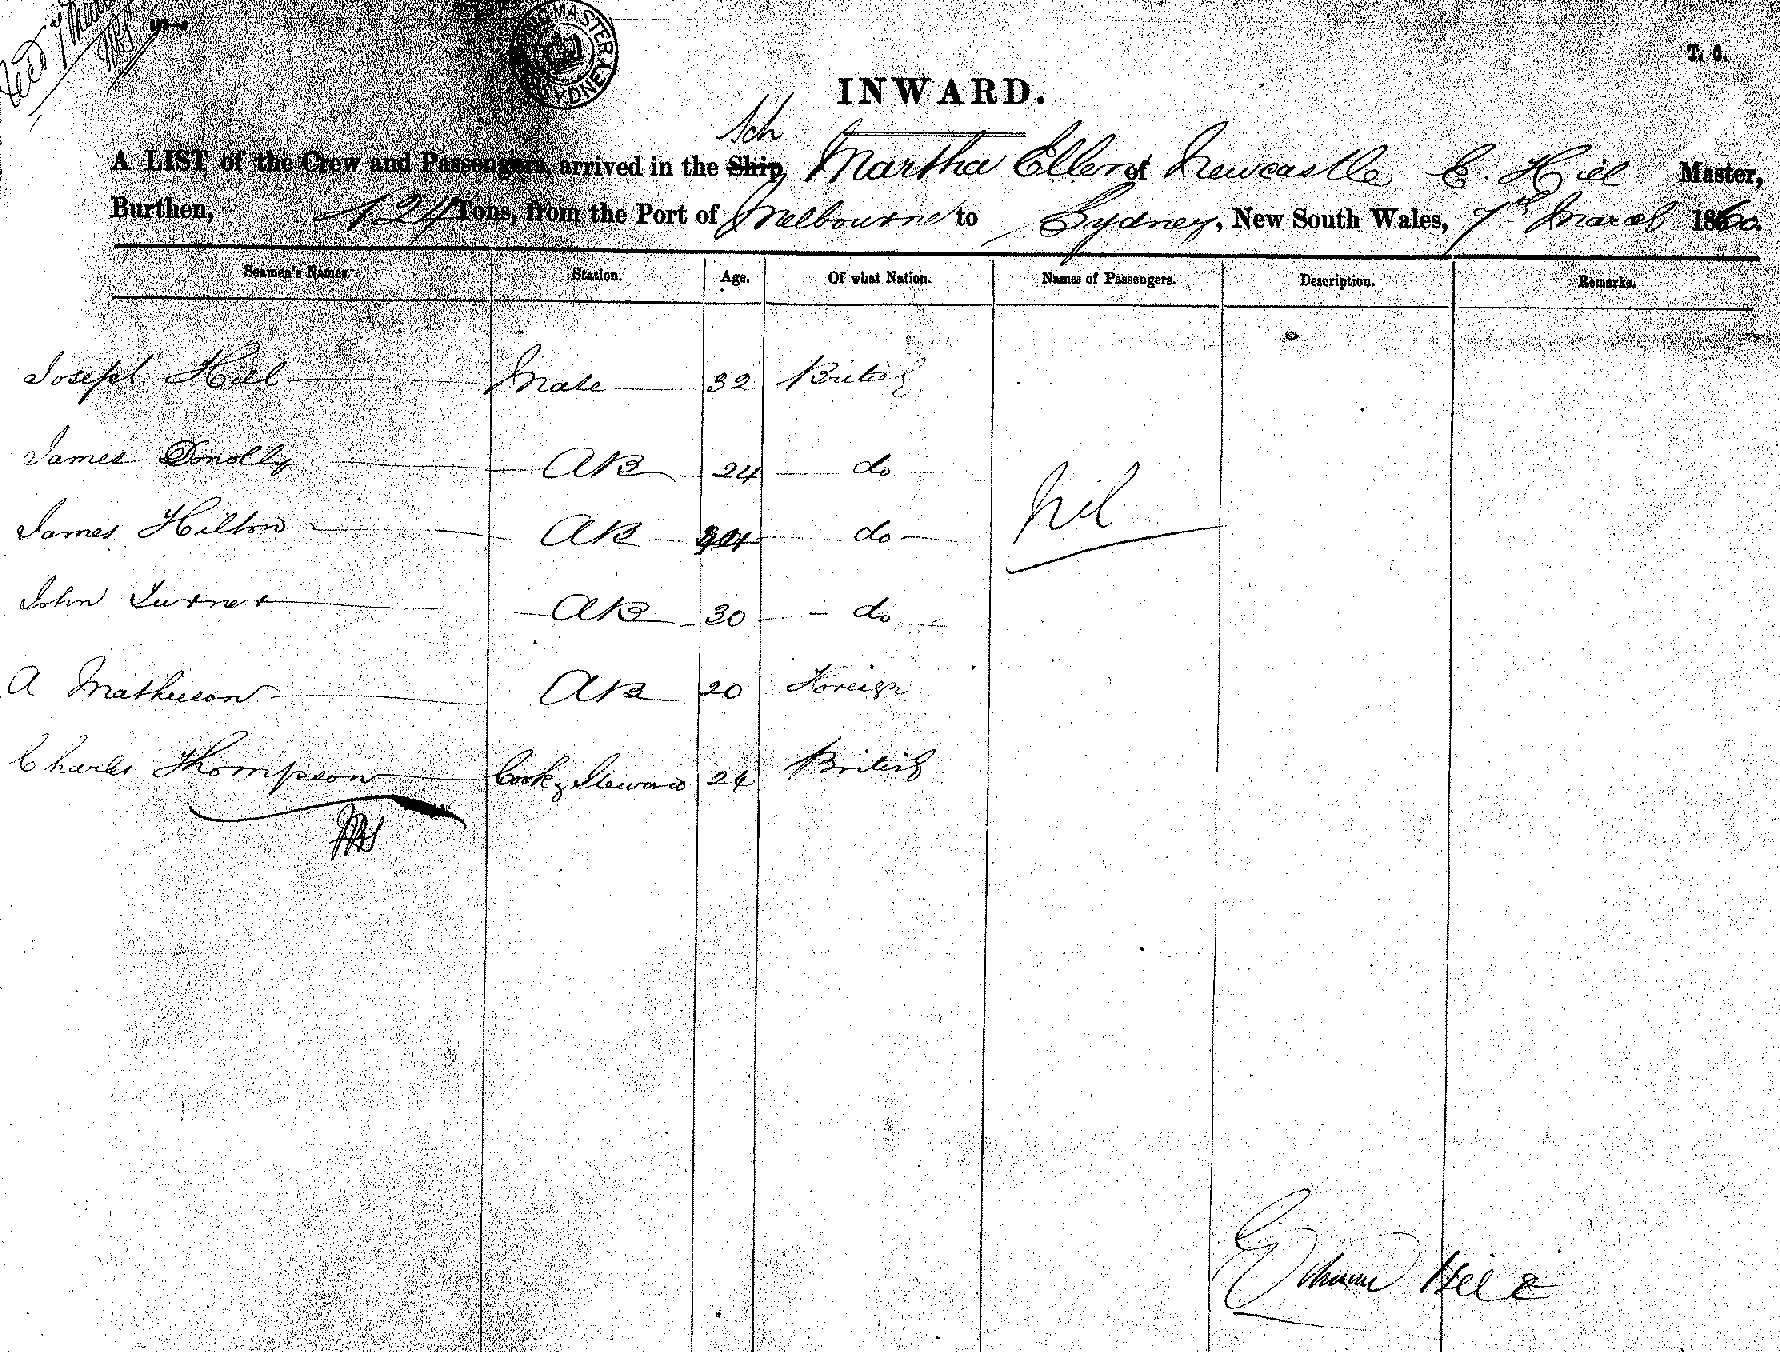 T. 6.
INWARD.
Sch
A LIST of the Crew and Passengers, arrived in the Ship, Martha Ellen of Newcastle E. Hill Master,
Burthen, 124 Tons, from the Port of Melbourne to Sydney, New South Wales, 7th March 1860.
Seamen's Names. Station. Age. Of what Nation. Names of Passengers. Description. Remarks.
Joseph Hill Mate 32 British
James Donolly AB 24 do
James Hilton AB do
nil
John Turner AB 30 do
A Mathieson AB 20 Foreign
Charles Thompson Cook & Steward 24 British
Edward Hill